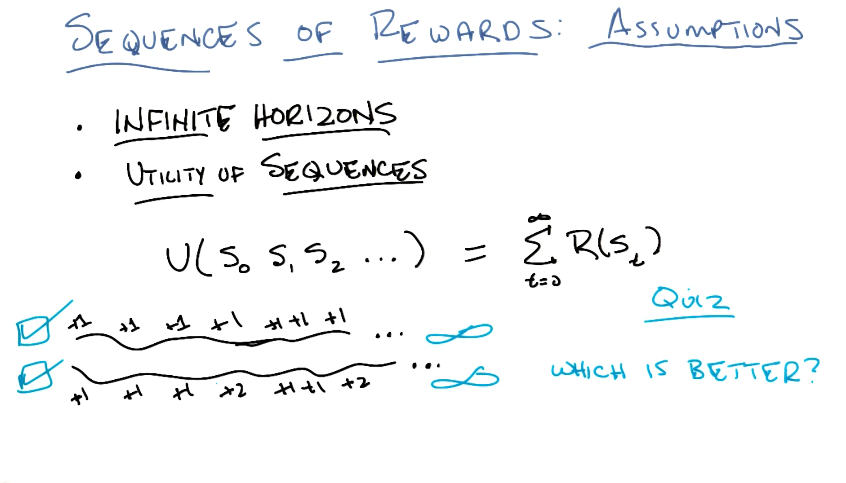 SEQUENCES OF REWARDS: ASSUMPTIONS
• INFINITE HORIZONS
• UTILITY OF SEQUENCES
U(S₀ S₁ S₂ ...) = ∑_{t=0}^{∞} R(S_t)
Quiz
+1 +1 +1 +1 +1 +1 +1 ... ∞
WHICH IS BETTER?
... ∞
+1 +1 +1 +2 +1 +1 +2